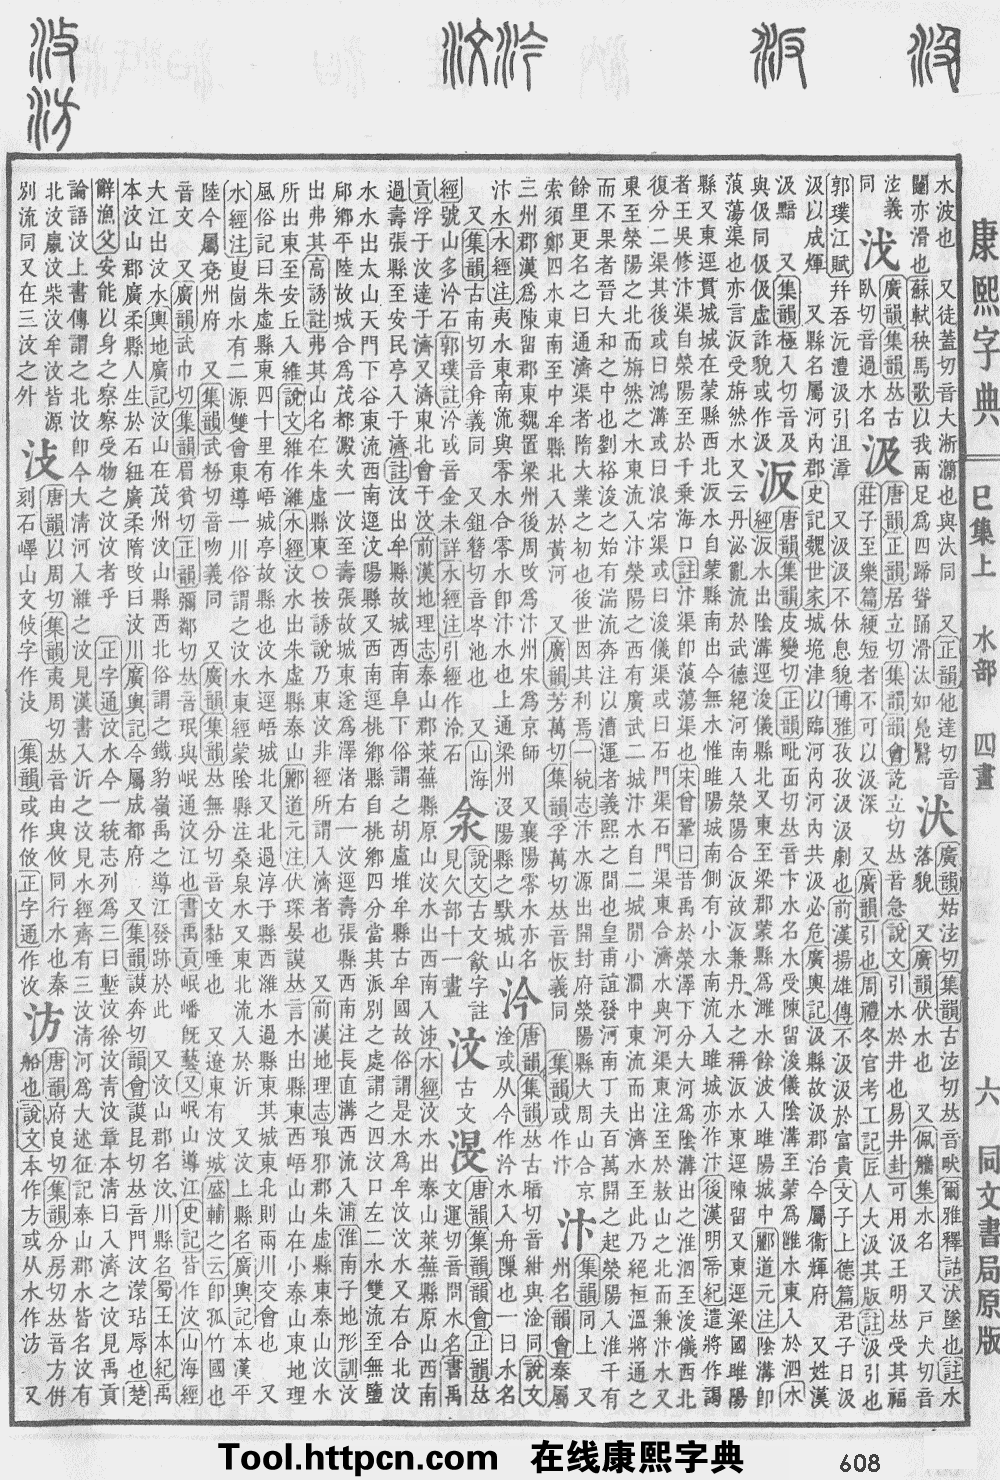 康熙字典 巳集上 水部 四畫 六 同文書局原版
水波也　又徒蓋切音大淅瀄也與汏同　又正韻他達切音
闥亦滑也蘇軾秧馬歌以我兩足爲四蹄聳踊滑汰如鳧鷖
汱
廣韻姑泫切集韻古泫切𠀤音畎爾雅釋詁汱墜也註水
落貌　又廣韻伏水也　又佩觿集水名　又戸犬切音
泫義
同
廣韻集韻𠀤古
臥切音過水名
汲
唐韻正韻居立切集韻韻會訖立切𠀤音急說文引水於井也易井卦可用汲王明𠀤受其福
莊子至樂篇綆短者不可以汲深　又廣韻引也周禮冬官考工記匠人大汲其版註汲引也
郭璞江賦幷吞沅澧汲引沮漳　又汲汲不休息貌博雅孜孜汲汲劇也前漢揚雄傳不汲汲於富貴文子上德篇君子日汲
汲以成煇　又縣名屬河內郡史記魏世家城垝津以臨河內河內共汲必危廣輿記汲縣故汲郡治今屬衞輝府　又姓漢
汲黯　又集韻極入切音及
與伋同伋伋虛詐貌或作汲
汳
唐韻集韻皮變切正韻毗面切𠀤音卞水名水受陳留浚儀陰溝至蒙爲雝水東入於泗水
經汳水出陰溝逕浚儀縣北又東至梁郡蒙縣爲濉水餘波入睢陽城中酈道元注陰溝卽
蒗蕩渠也亦言汳受旃然水又云丹泌亂流於武德絕河南入滎陽合汳故汳兼丹水之稱汳水東逕陳留又東逕梁國睢陽
縣又東逕貫城城在蒙縣西北汳水自蒙縣南出今無水惟睢陽城南側有小水南流入睢城亦作汴後漢明帝紀遣將作謁
者王吳修汴渠自滎陽至於千乘海口註汴渠卽蒗蕩渠也宋曾鞏曰昔禹於滎澤下分大河爲陰溝出之淮泗至浚儀西北
復分二渠其後或曰鴻溝或曰浪宕渠或曰浚儀渠或曰石門渠石門渠東合濟水與河渠東注至於敖山之北而兼汴水又
東至滎陽之北而旃然之水東流入汴滎陽之西有廣武二城汴水自二城閒小澗中東流而出濟水至此乃絕桓溫將通之
而不果者晉大和之中也劉裕浚之始有湍流奔注以漕運者義熙之閒也皇甫誼發河南丁夫百萬開之起滎陽入淮千有
餘里更名之曰通濟渠者隋大業之初也後世因其利焉一統志汴水源出開封府滎陽縣大周山合京
索須鄭四水東南至中牟縣北入於黃河　又廣韻芳萬切集韻孚萬切𠀤音㤆義同　集韻或作汴
汴
集韻同上　又
州名韻會秦屬
三川郡漢爲陳留郡東魏置梁州後周攺爲汴州宋爲京師　又襄陽零水亦名
汴水水經注夷水東南流與零水合零水卽汴水也上通梁州沒陽縣之默城山
汵
唐韻集韻𠀤古暗切音紺與淦同說文
淦或从今作汵水入舟隟也一曰水名
又集韻古南切音弇義同　又鉏簪切音岑池也　又山海
經號山多汵石郭璞註汵或音金未詳水經注引經作泠石
說文古文㱃字註
見欠部十一畫
汶
古文
渂
唐韻集韻韻會正韻𠀤
文運切音問水名書禹
貢浮于汶達于濟又濟東北會于汶前漢地理志泰山郡萊蕪縣原山汶水出西南入泲水經汶水出泰山萊蕪縣原山西南
過壽張縣至安民亭入于濟註汶出牟縣故城西南阜下俗謂之胡盧堆牟縣古牟國故俗謂是水爲牟汶汶水又右合北汶
水水出太山天門下谷東流西南逕汶陽縣又西南逕桃鄕縣自桃鄕四分當其派別之處謂之四汶口左二水雙流至無鹽
郈鄕平陸故城合爲茂都澱次一汶至壽張故城東遂爲澤渚右一汶逕壽張縣西南注長直溝西流入浦淮南子地形訓汶
出弗其高誘註弗其山名在朱虛縣東○按誘說乃東汶非經所謂入濟者也　又前漢地理志琅邪郡朱虛縣東泰山汶水
所出東至安丘入維說文維作濰水經汶水出朱虛縣泰山酈道元注伏琛晏謨𠀤言水出縣東西峿山在小泰山東地理
風俗記曰朱虛縣東四十里有峿城亭故縣也汶水逕峿城北又北過淳于縣西濰水過縣東其城東北則兩川交會也　又
水經注崮水有二源雙會東導一川俗謂之汶水東經蒙陰縣注桑泉水又東北流入於沂　又汶上縣名廣輿記本漢平
陸今屬兗州府　又集韻武粉切音吻義同　又廣韻集韻𠀤無分切音文黏唾也　又遼東有汶城盛輔之云卽孤竹國也
音文　又廣韻武巾切集韻眉貧切正韻彌鄰切𠀤音珉與岷通汶江也書禹貢岷嶓旣藝又岷山導江史記皆作汶山海經
大江出汶水輿地廣記汶山在茂州汶山縣西北俗謂之鐵豹嶺禹之導江發跡於此　又汶山郡名汶川縣名蜀王本紀禹
本汶山郡廣柔縣人生於石紐廣柔隋攺曰汶川廣輿記今屬成都府　又集韻謨奔切韻會謨昆切𠀤音門汶濛玷辱也楚
辭漁父安能以身之察察受物之汶汶者乎　正字通汶水今一統志列爲三曰塹汶徐汶靑汶章本淸曰入濟之汶見禹貢
論語汶上書傳謂之北汶卽今大淸河入濰之汶見漢書入沂之汶見水經齊有三汶淸河爲大述征記泰山郡水皆名汶有
北汶嬴汶柴汶牟汶皆源
別流同又在三汶之外
唐韻以周切集韻夷周切𠀤音由與攸同行水也秦
刻石嶧山文攸字作　集韻或作攸正字通作
汸
唐韻府良切集韻分房切𠀤音方倂
船也說文本作方或从水作汸　又
Tool.httpcn.com 在线康熙字典
608